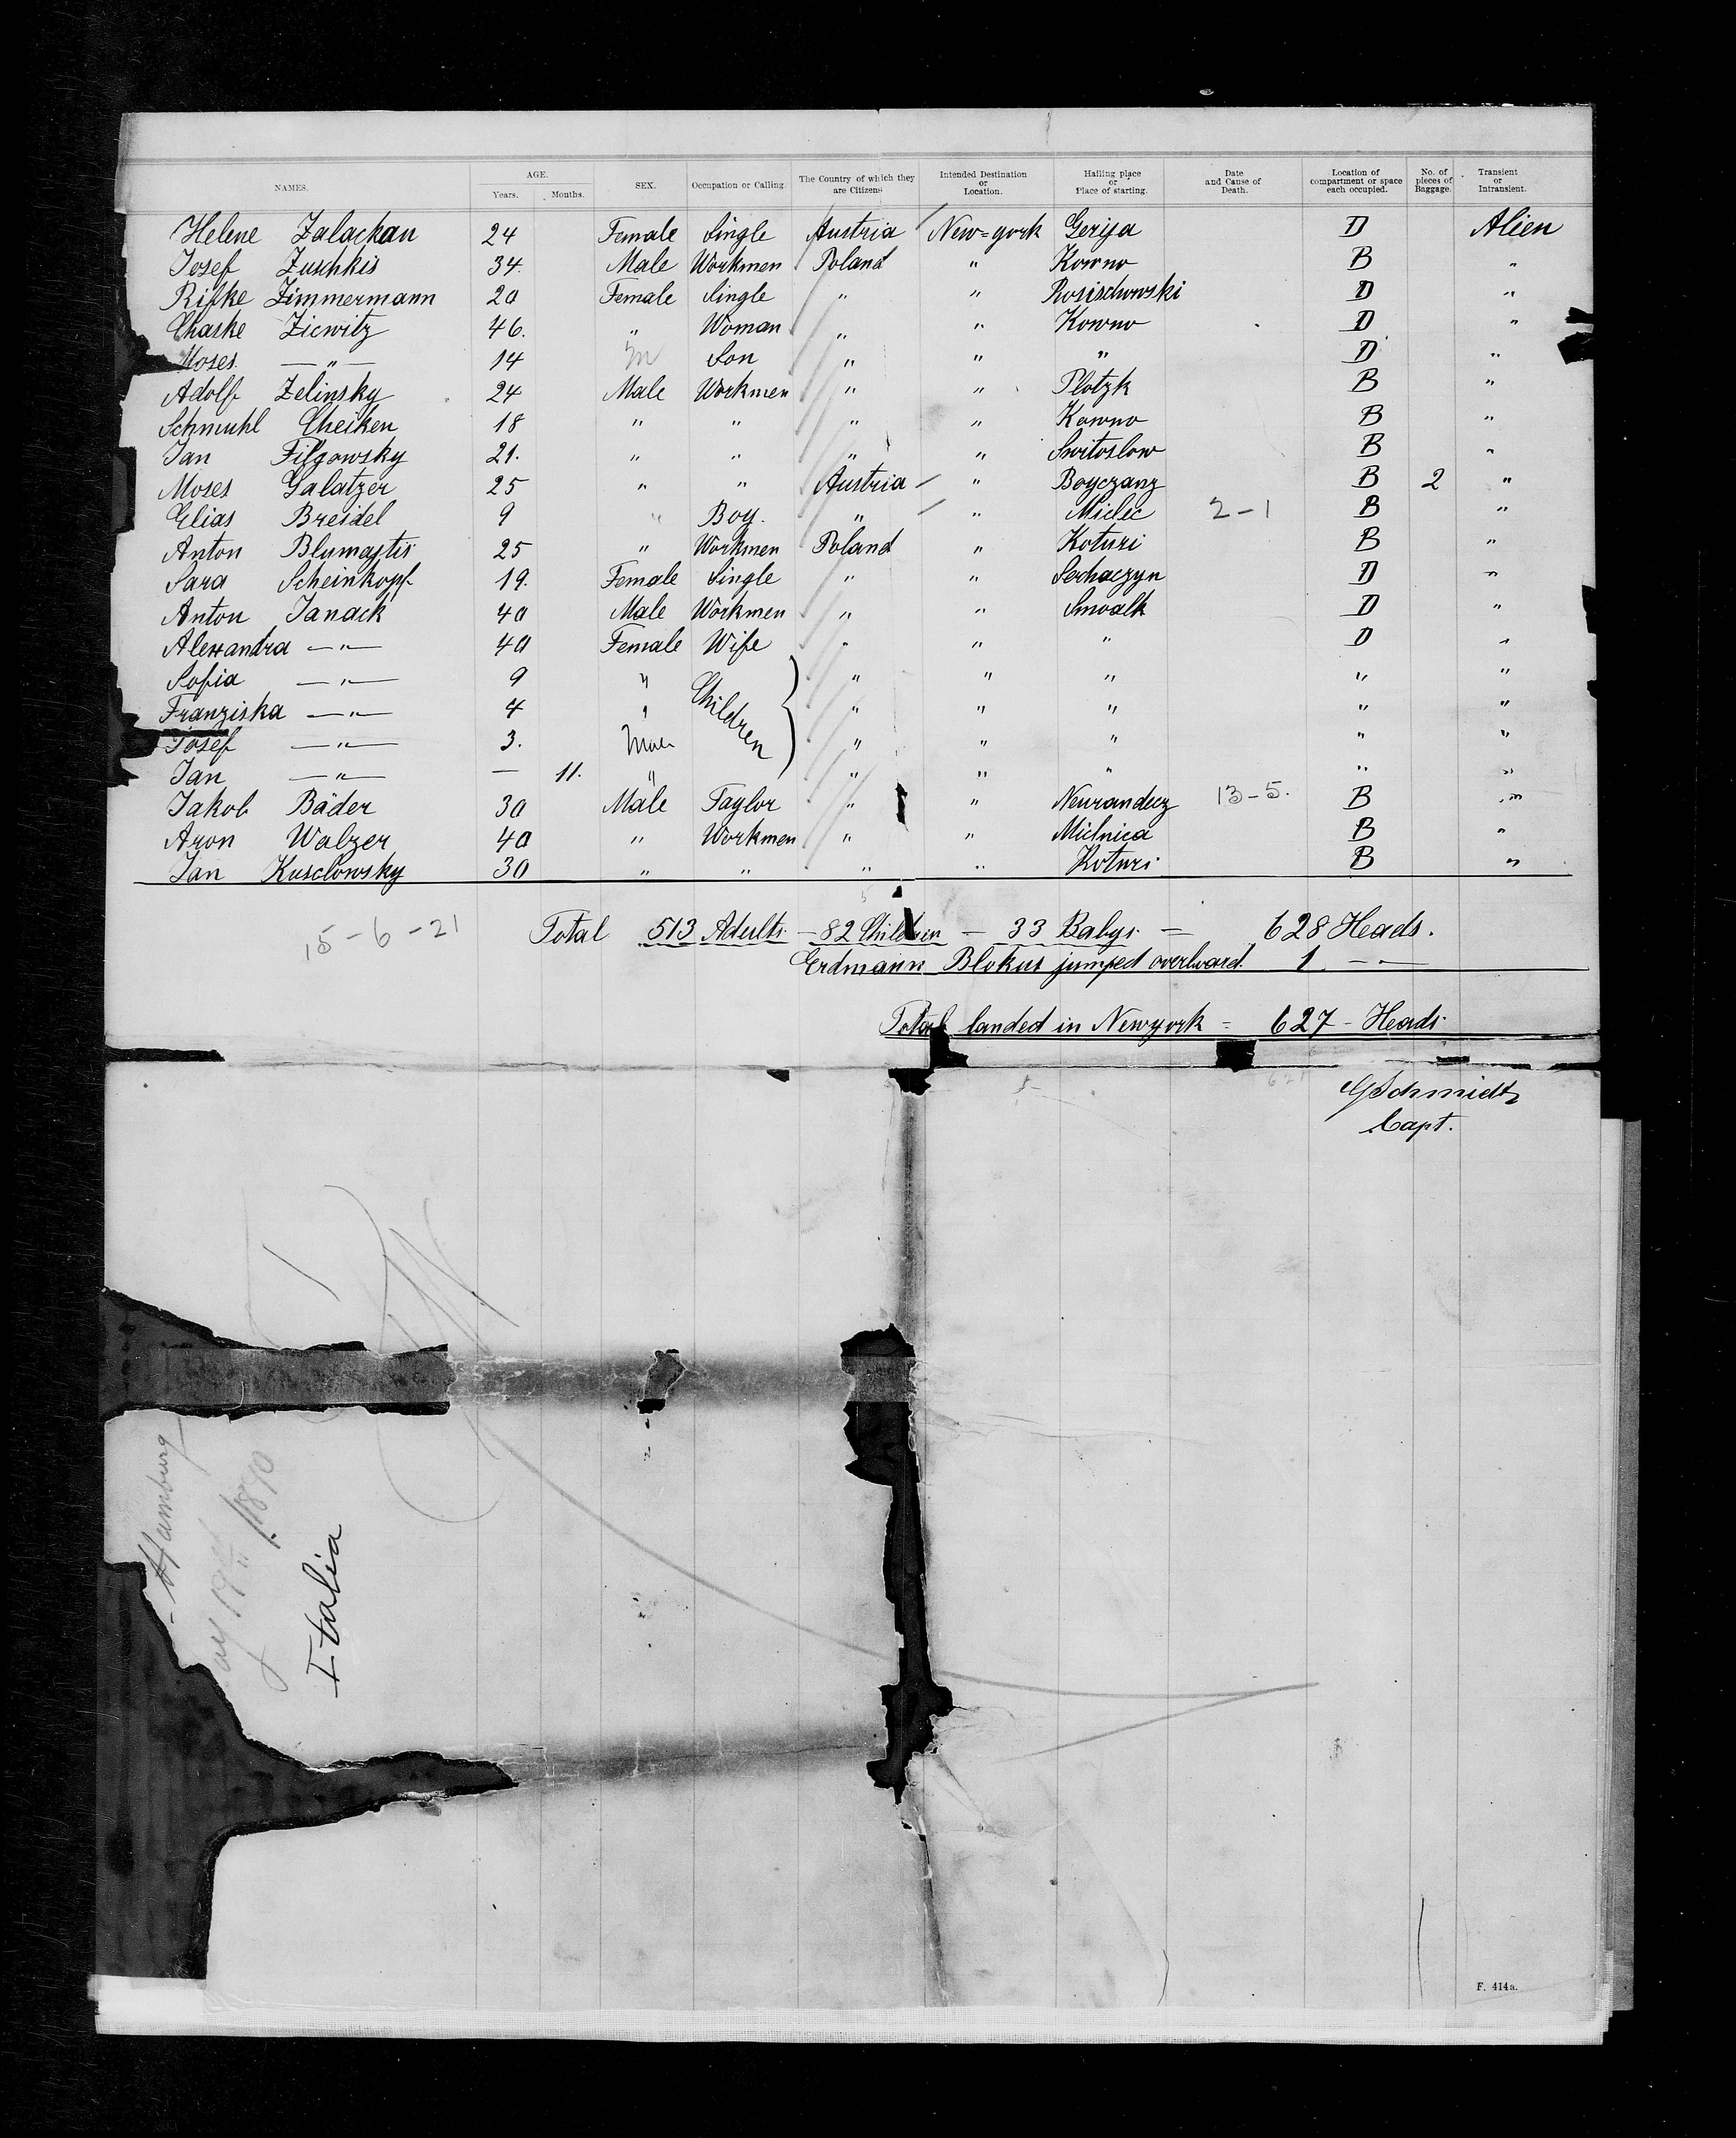 NAMES. AGE. Years. Months. SEX. Occupation or Calling. The Country of which they are Citizens Intended Destination or Location. Hailing place or Place of starting. Date and Cause of Death. Location of compartment or space each occupied. No. of pieces of Baggage. Transient or Intransient.
Helene Zalackan 24 Female Single Austria New=york Gerija D Alien
Josef Zuschkis 34. Male Workmen Poland " Kowno B "
Rifke Zimmermann 20 Female Single " " Rosischowski D "
Chaske Ziewitz 46. " Woman " " Kowno D "
Moses —"— 14 m Son " " " D "
Adolf Zelinsky 24 Male Workmen " " Plotzk B "
Schmuhl Cheiken 18 " " " " Kowno B "
Jan Filgowsky 21. " " " " Switoslow B "
Moses Galatzer 25 " " Austria " Boyczang B 2 "
Elias Breidel 9 " Boy. " " Mielec 2-1 B "
Anton Blumastis 25 " Workmen Poland " Koturi B "
Sara Scheinkopf 19. Female Single " " Sochaczyn D "
Anton Janack 40 Male Workmen " " Smoalk D "
Alexandra —"— 40 Female Wife " " " D "
Sofia —"— 9 " Children " " " " "
Franziska —"— 4 " " " " " "
Josef —"— 3. Male " " " " "
Jan —"— — 11. " " " " " "
Jakob Bäder 30 Male Taylor " " Neurandez 13-5. B "
Aron Walzer 40 " Workmen " " Mielnica B "
Jan Kusclowsky 30 " " " " Koturi B "
15-6-21 Total 513 Adults - 82 Children - 33 Babys = 628 Heads.
Erdmann Blokus jumped overboard. 1 —"—
Total landed in Newyork = 627 - Heads
G Schmidt
Capt.
- Hamburg
ay 17th 1890
Italia
F. 414a.